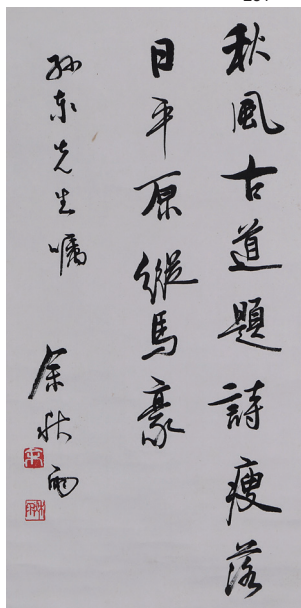 秋風古道題詩瘦落
日平原縱馬豪
孙东先生嘱
余秋雨